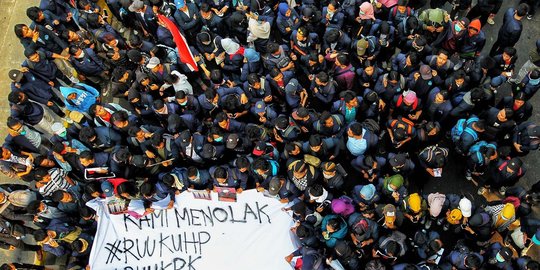 KAMI MENOLAK
#RUUKUHP
#RUUKPK